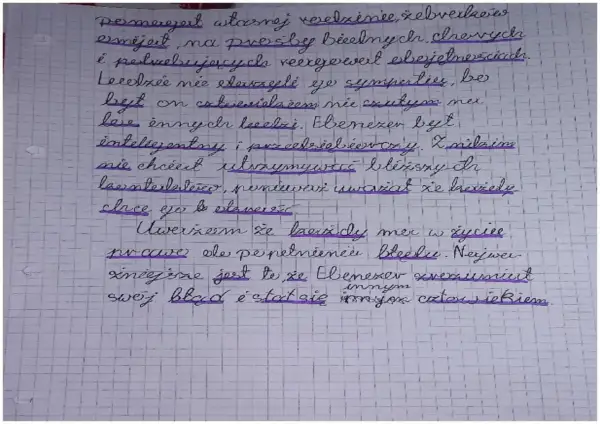 pomagał własnej rodzinie, żebraków
omijał, na prośby biednych, chorych
i potrzebujących reagował obojętnościach.
Ludzie nie darzyli go sympatią, bo
był on człowiekiem nie czułym na
los innych ludzi. Ebenezer był
inteligentny i przedsiębiorczy. Z nikim
nie chciał utrzymywać bliższych
kontaktów, ponieważ uważał że każdy
chce go okraść.
Uważam że każdy ma w życiu
prawo do popełnienia błędu. Najwa-
żniejsze jest to, że Ebenezer zrozumiał
innym
swój błąd i stał się człowiekiem